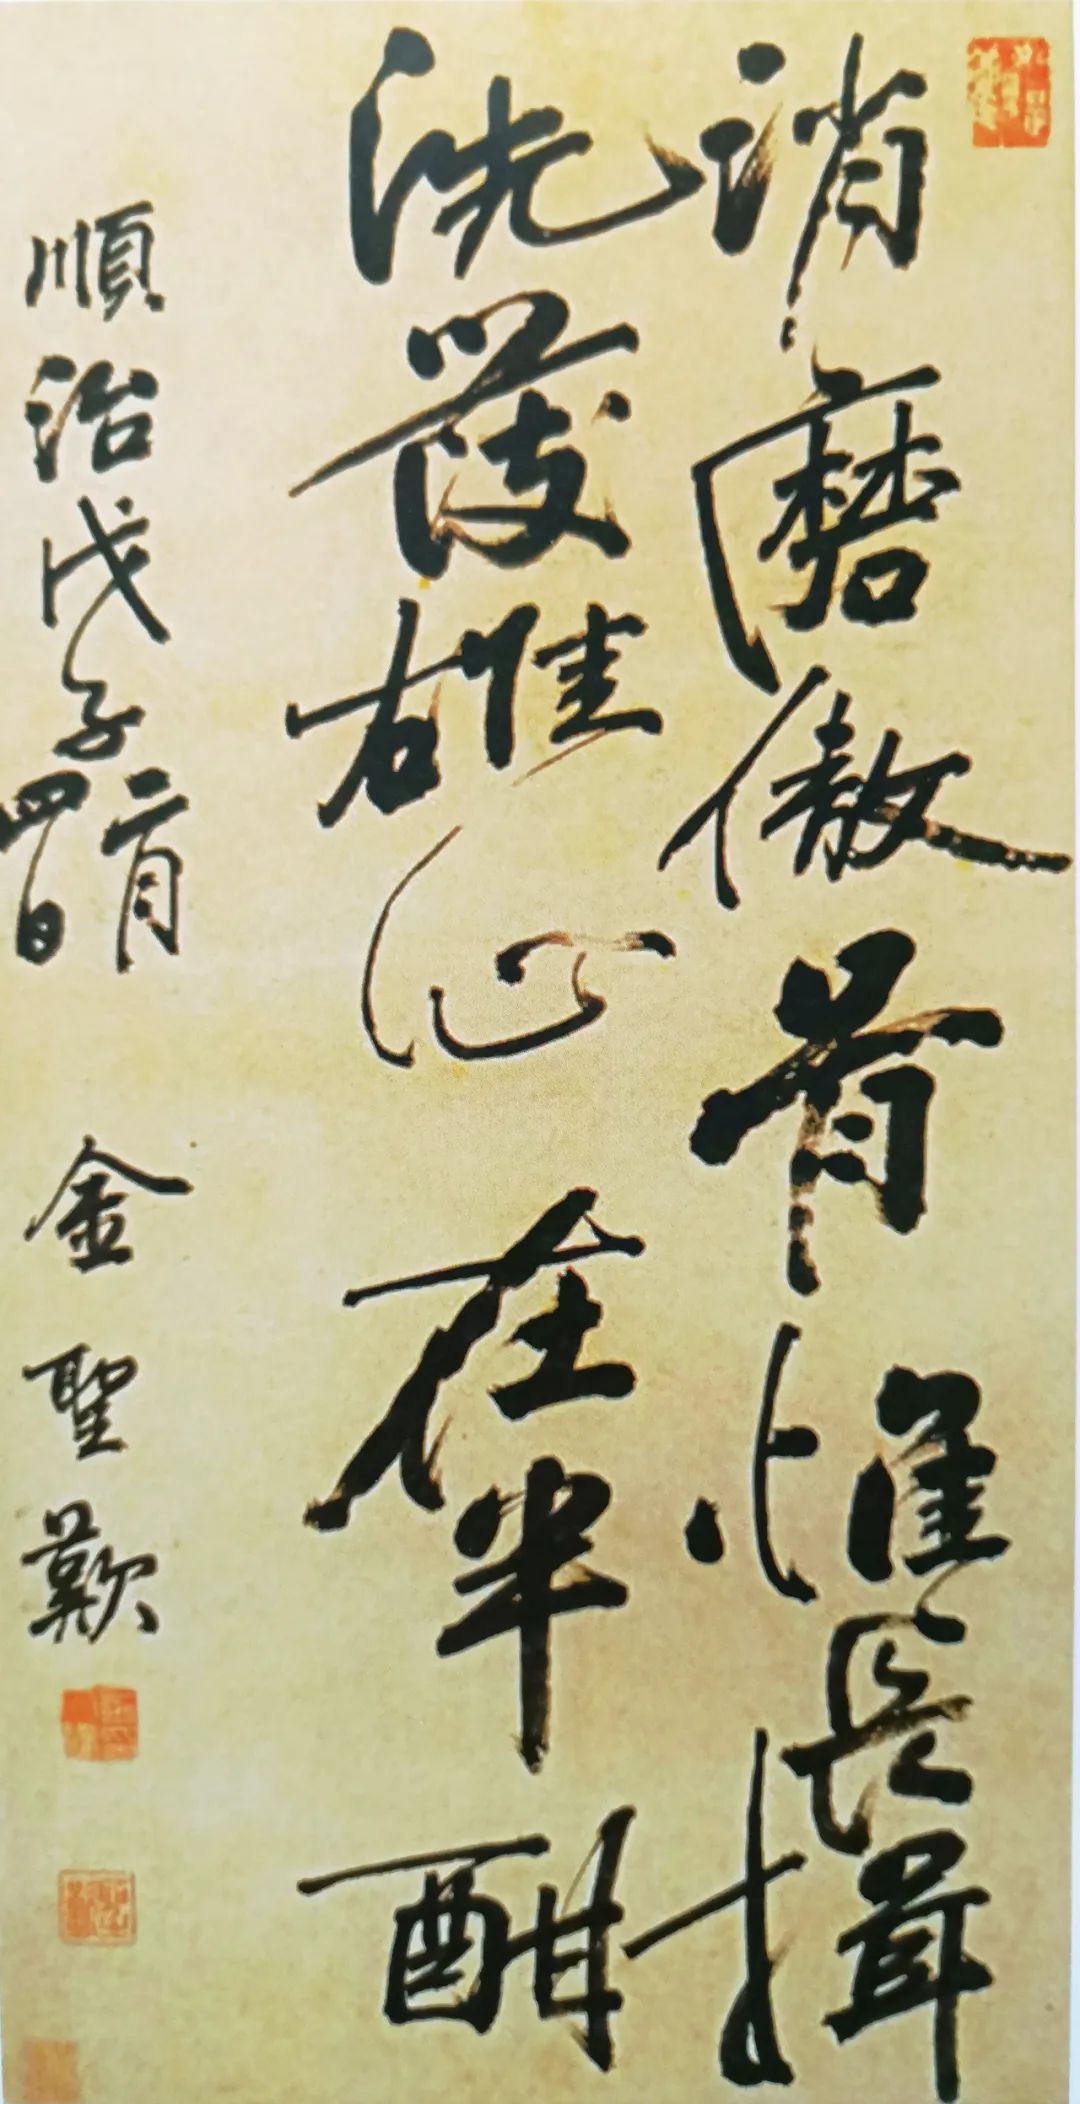 消磨傲骨惟長揖
洗發雄心在半酣
順治戊子二月
四日
金聖歎